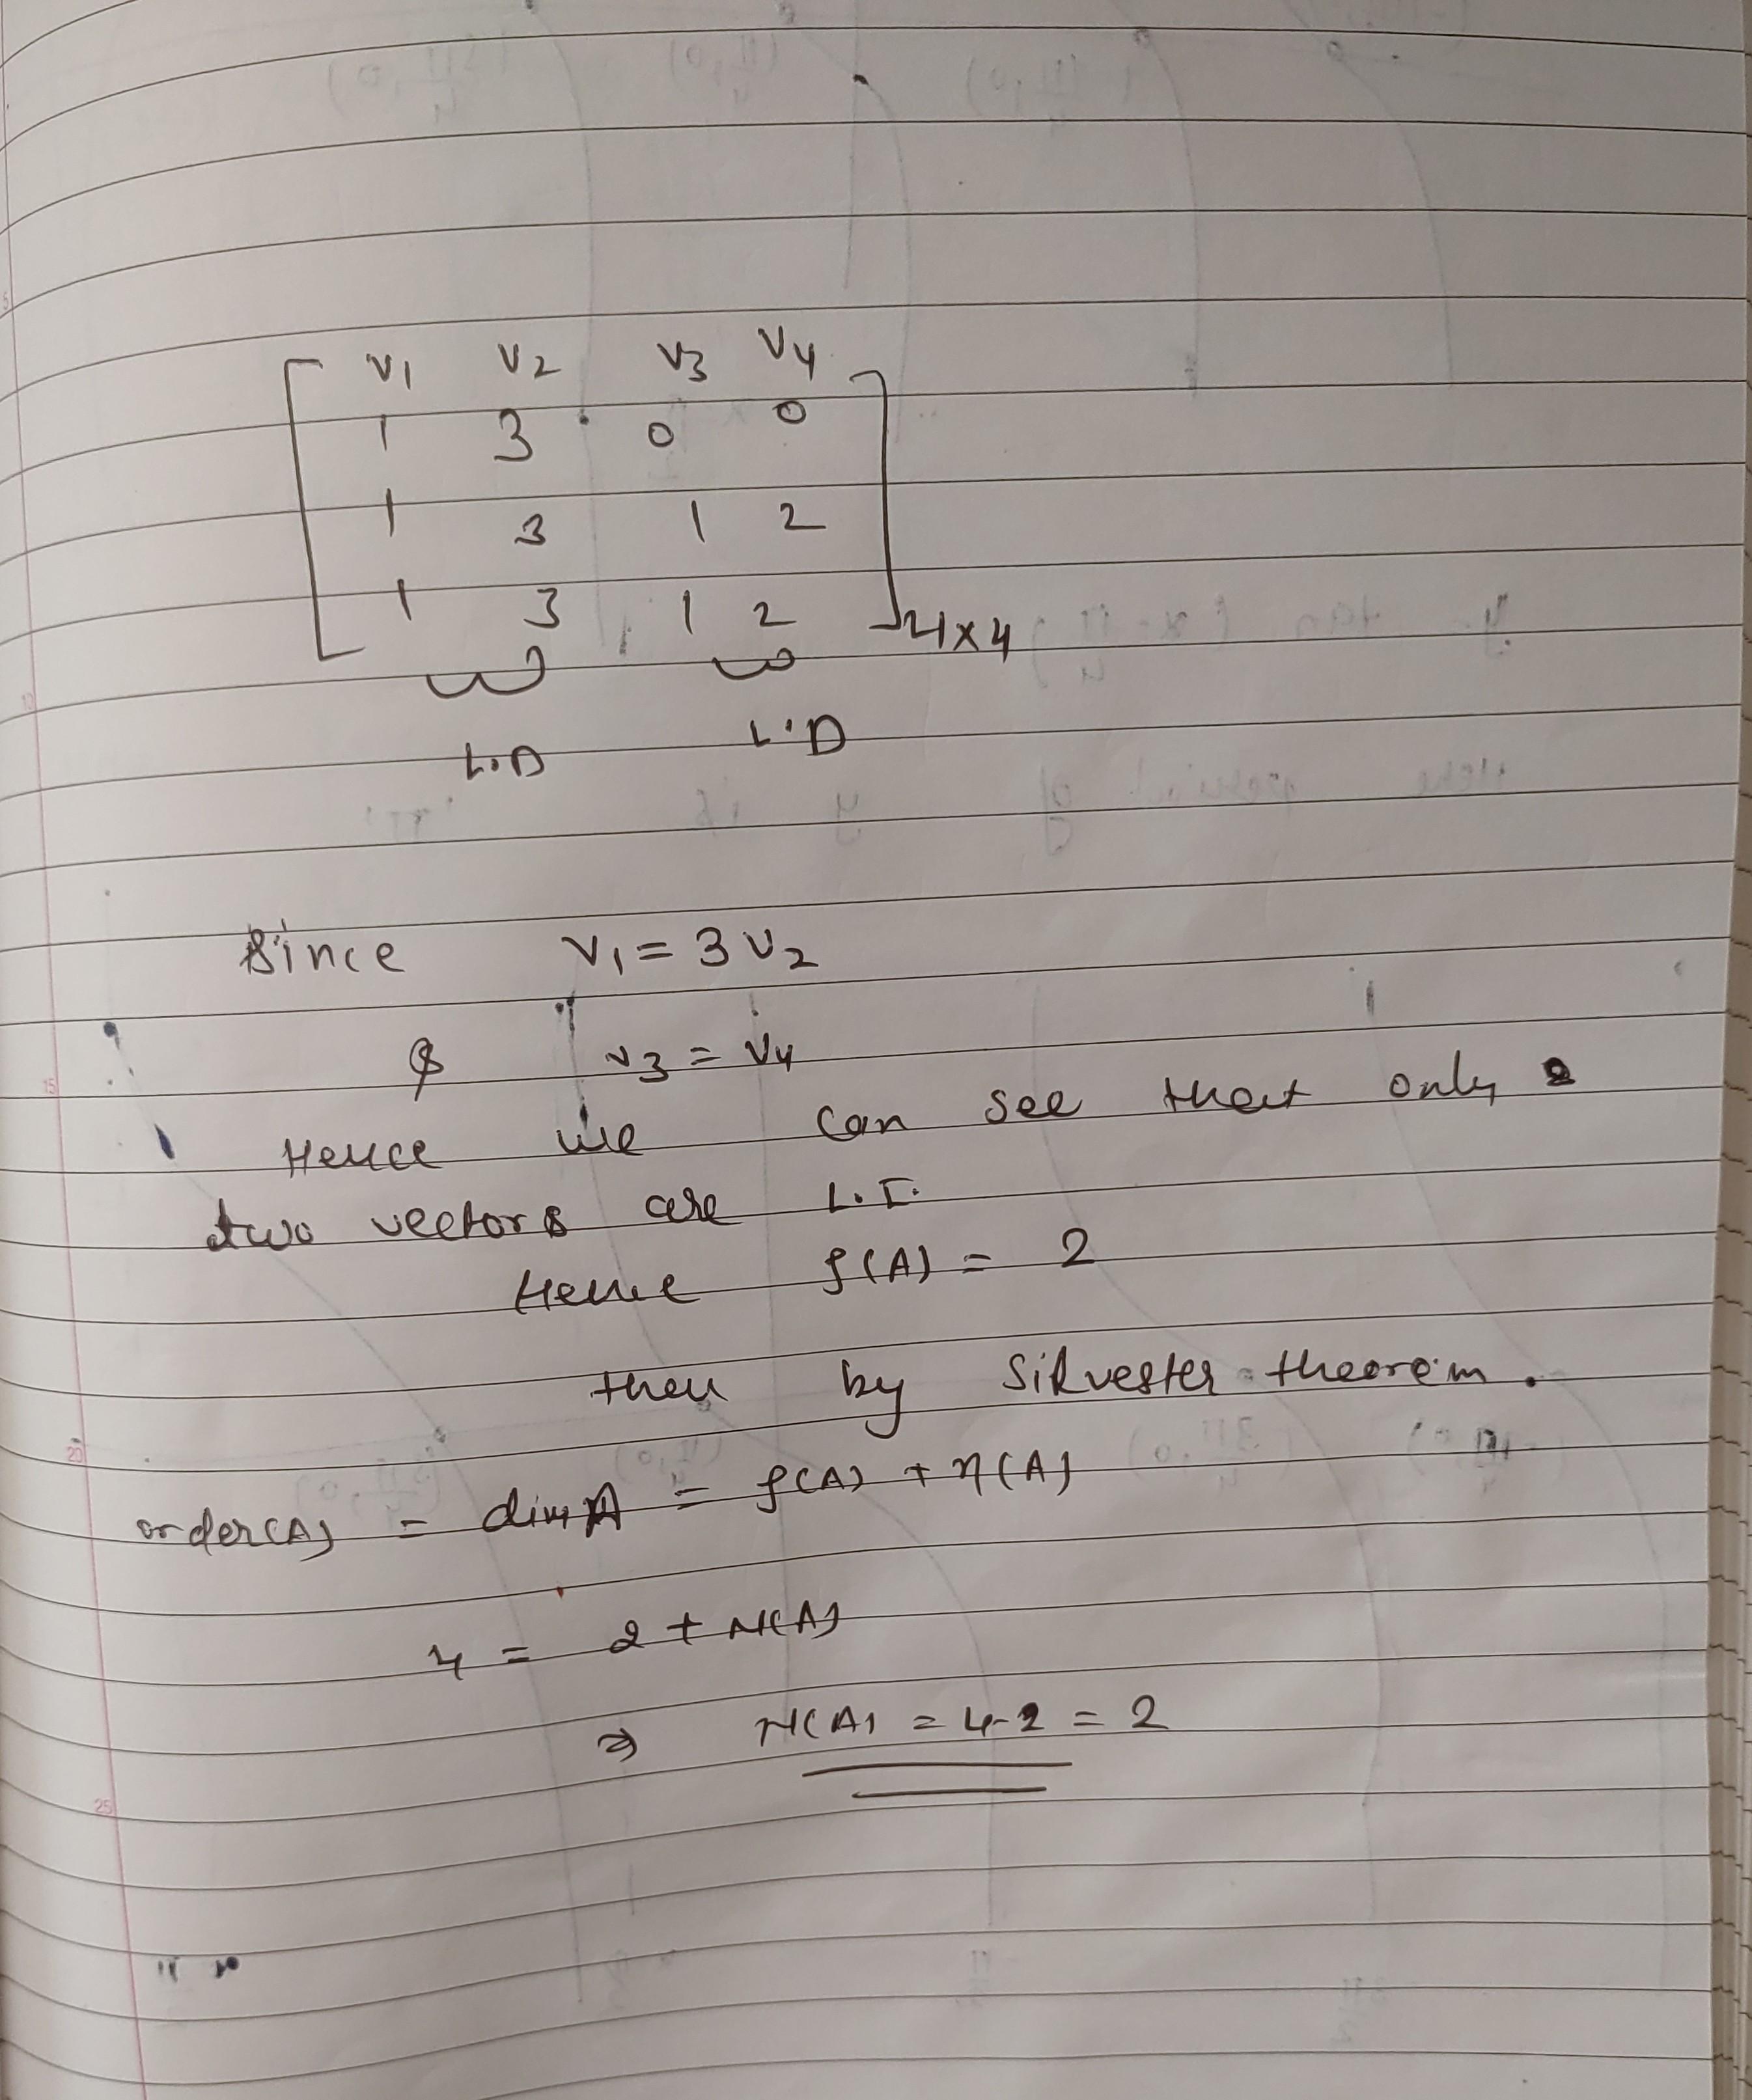 V1 V2 V3 V4
1 3 0 0
1 3 1 2
1 3 1 2 4×4
L.D L.D
Since V1 = 3 V2
& V3 = V4
Hence we can see that only
two vectors are L.I.
Hence ρ(A) = 2
then by Silvester theorem.
order(A) = dim A = ρ(A) + η(A)
4 = 2 + N(A)
⇒ N(A) = 4-2 = 2